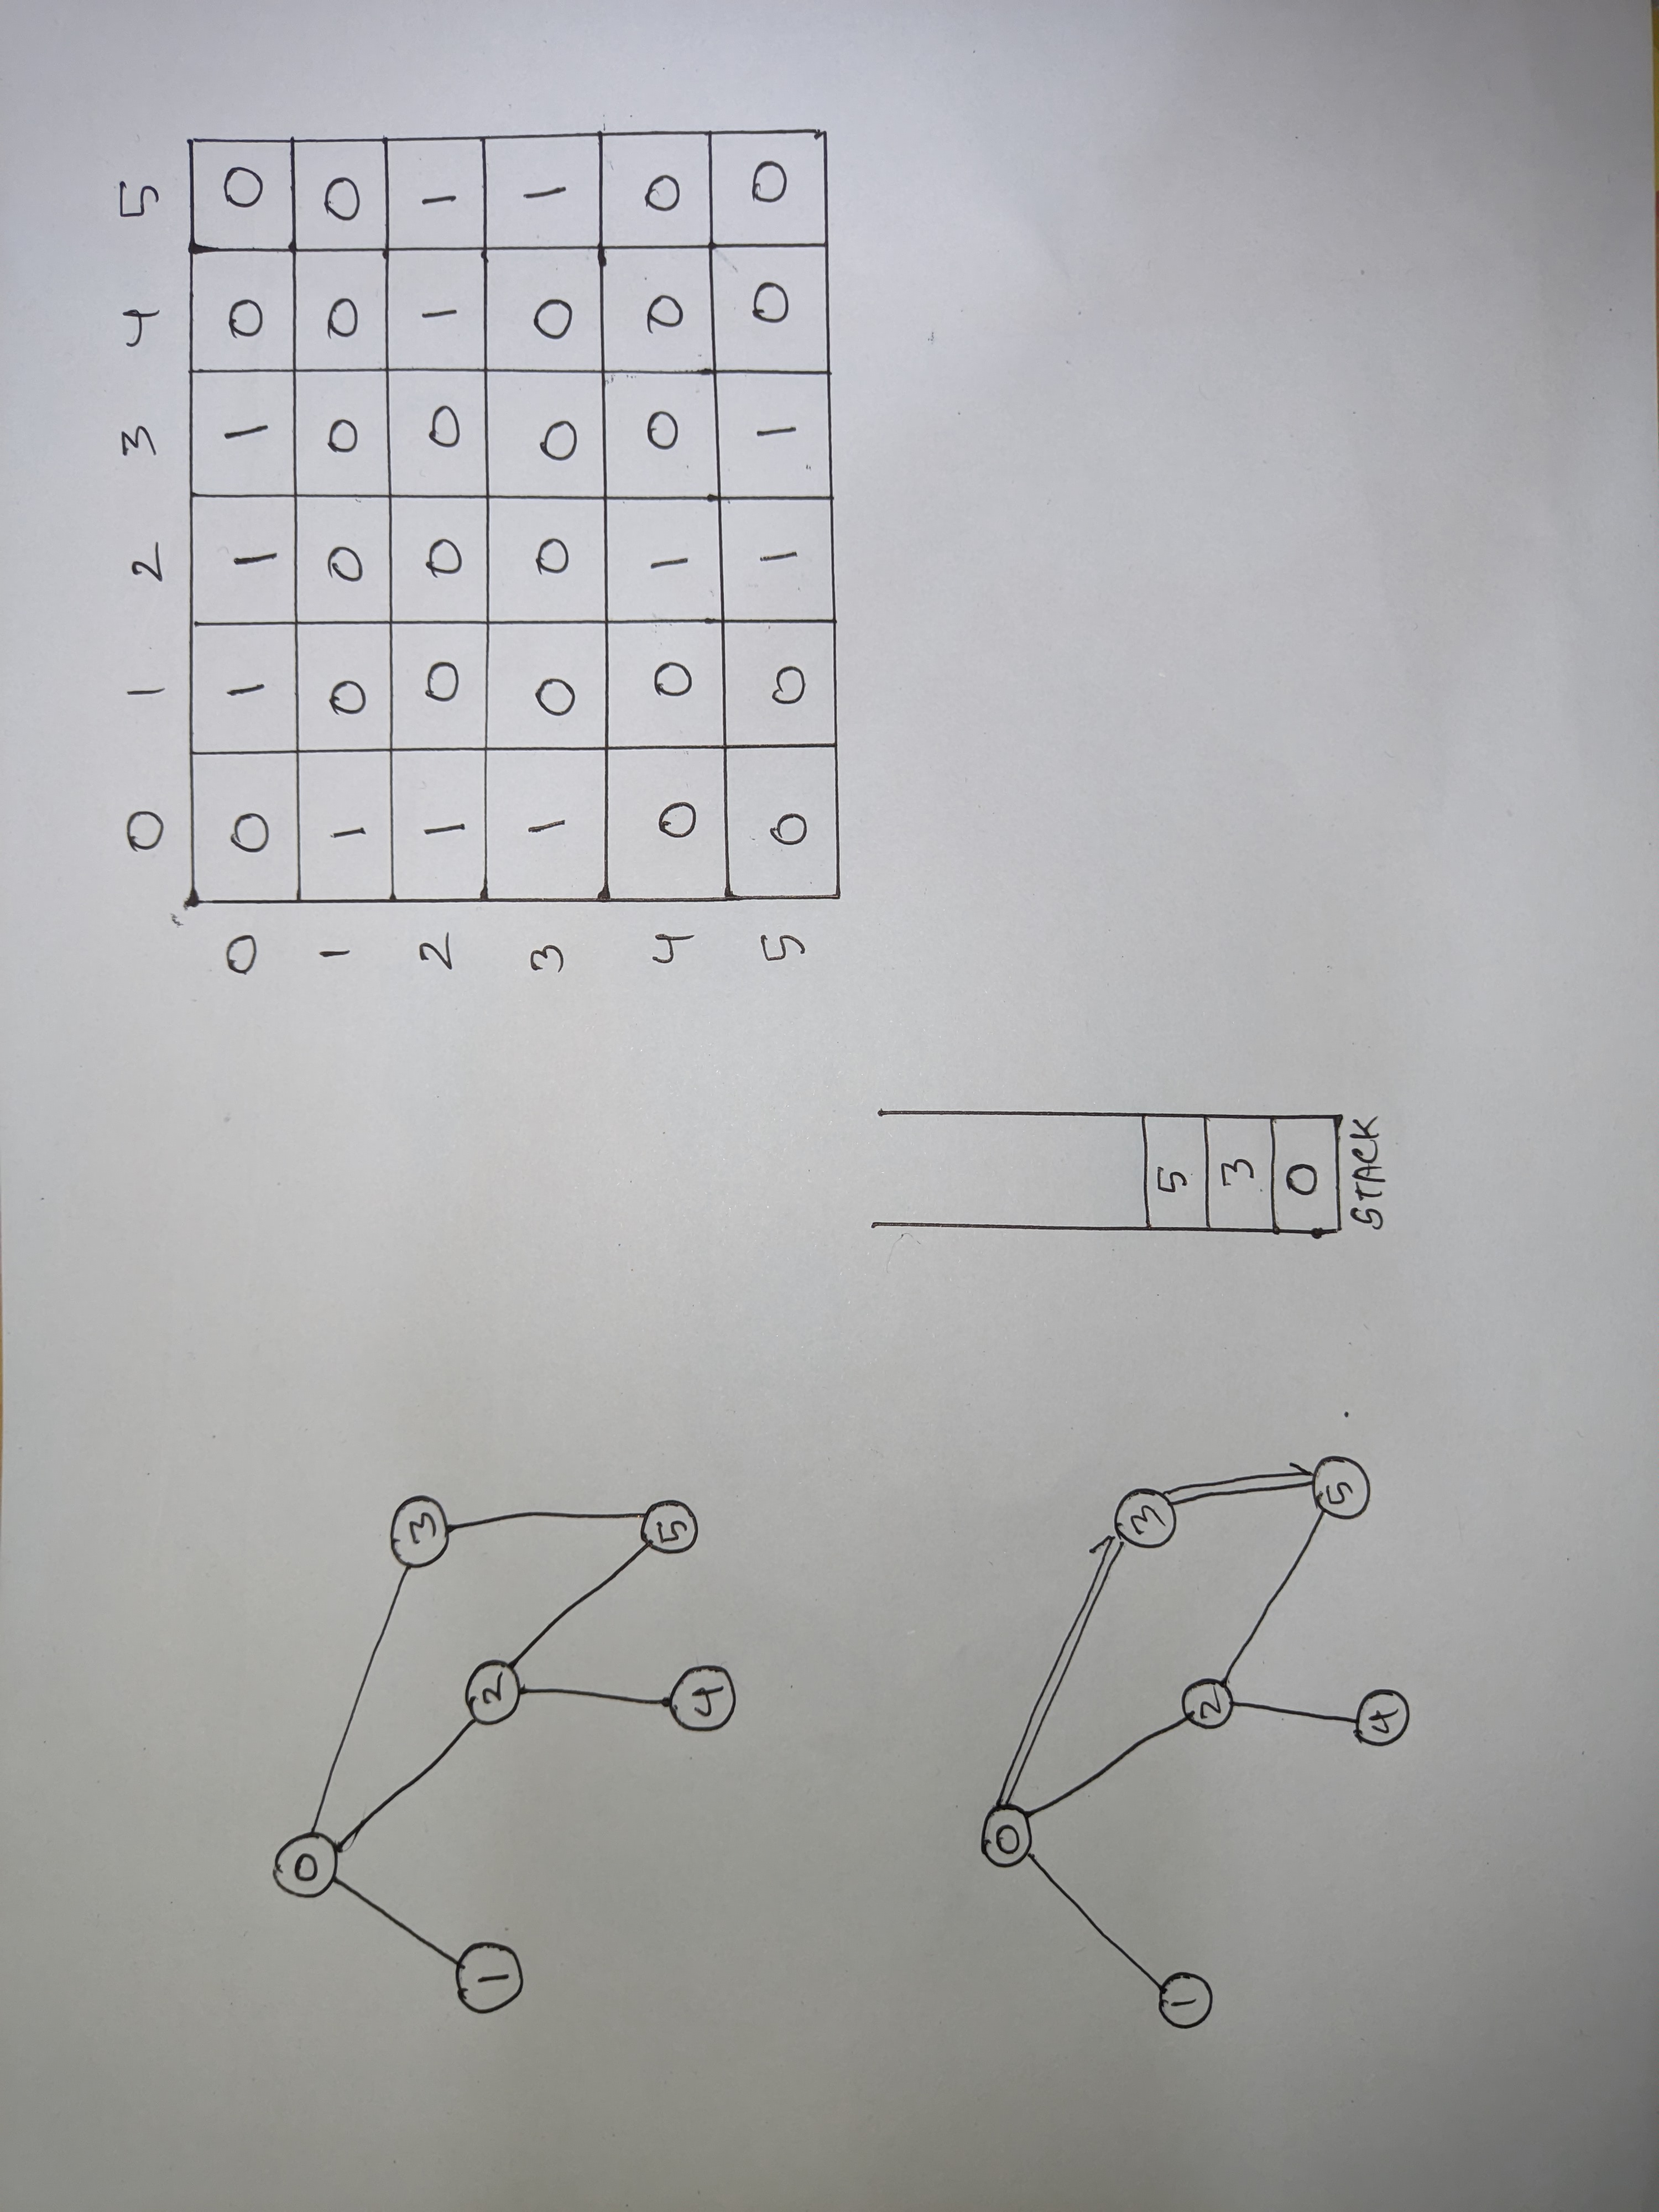 0
3
1
2
5
4
0 1 2 3 4 5
0 0 1 1 1 0 0
1 1 0 0 0 0 0
2 1 0 0 0 1 1
3 1 0 0 0 0 1
4 0 0 1 0 0 0
5 0 0 1 1 0 0
0
3
1
2
5
4
5
3
0
STACK